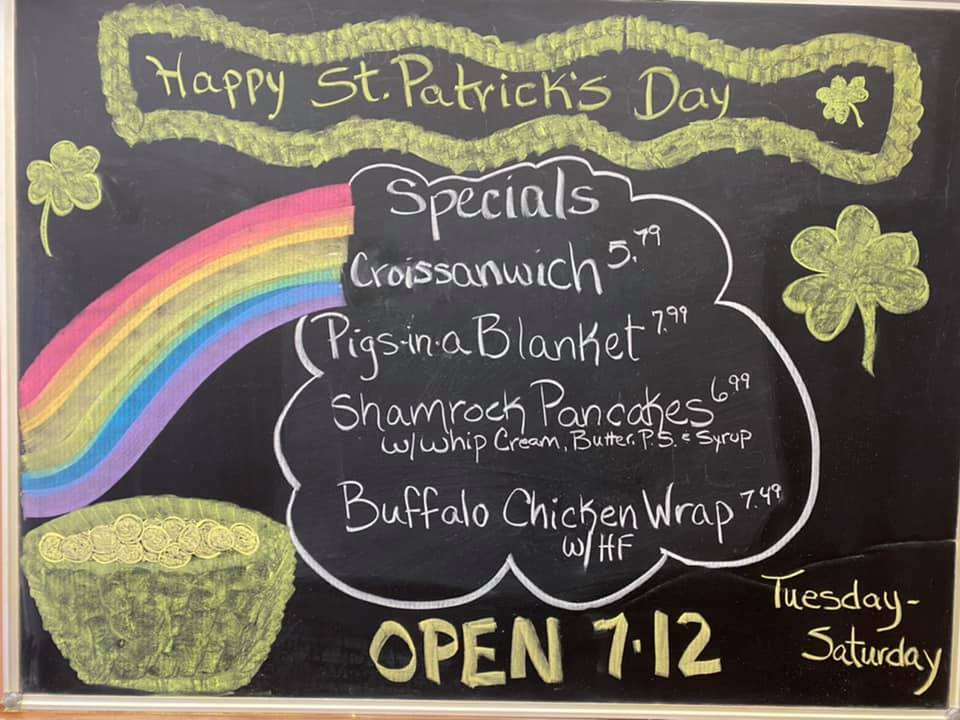 Happy St. Patrick's Day
Specials
Croissanwich 5.79
Pigs-in-a Blanket 7.99
Shamrock Pancakes 6.99
w/whip Cream, Butter, P.S. & Syrup
Buffalo Chicken Wrap 7.49
w/HF
OPEN 7-12
Tuesday-
Saturday